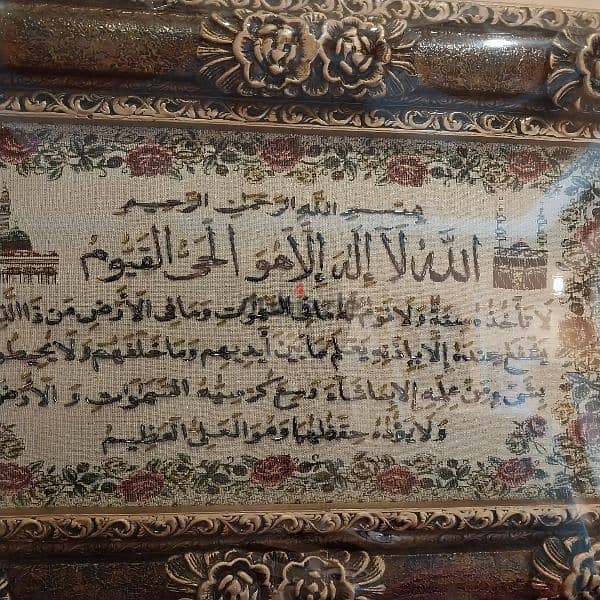 بسم الله الرحمن الرحيم
اللَّهُ لَا إِلَهَ إِلَّا هُوَ الْحَيُّ الْقَيُّومُ
لا تأخذه سنة ولا نوم له ما في السموات وما في الأرض من ذا الذي
يشفع عنده إلا بإذنه يعلم ما بين أيديهم وما خلفهم ولا يحيطون
بشيء من علمه إلا بما شاء وسع كرسيه السموات و الأرض
ولا يؤده حفظهما وهو العلي العظيم